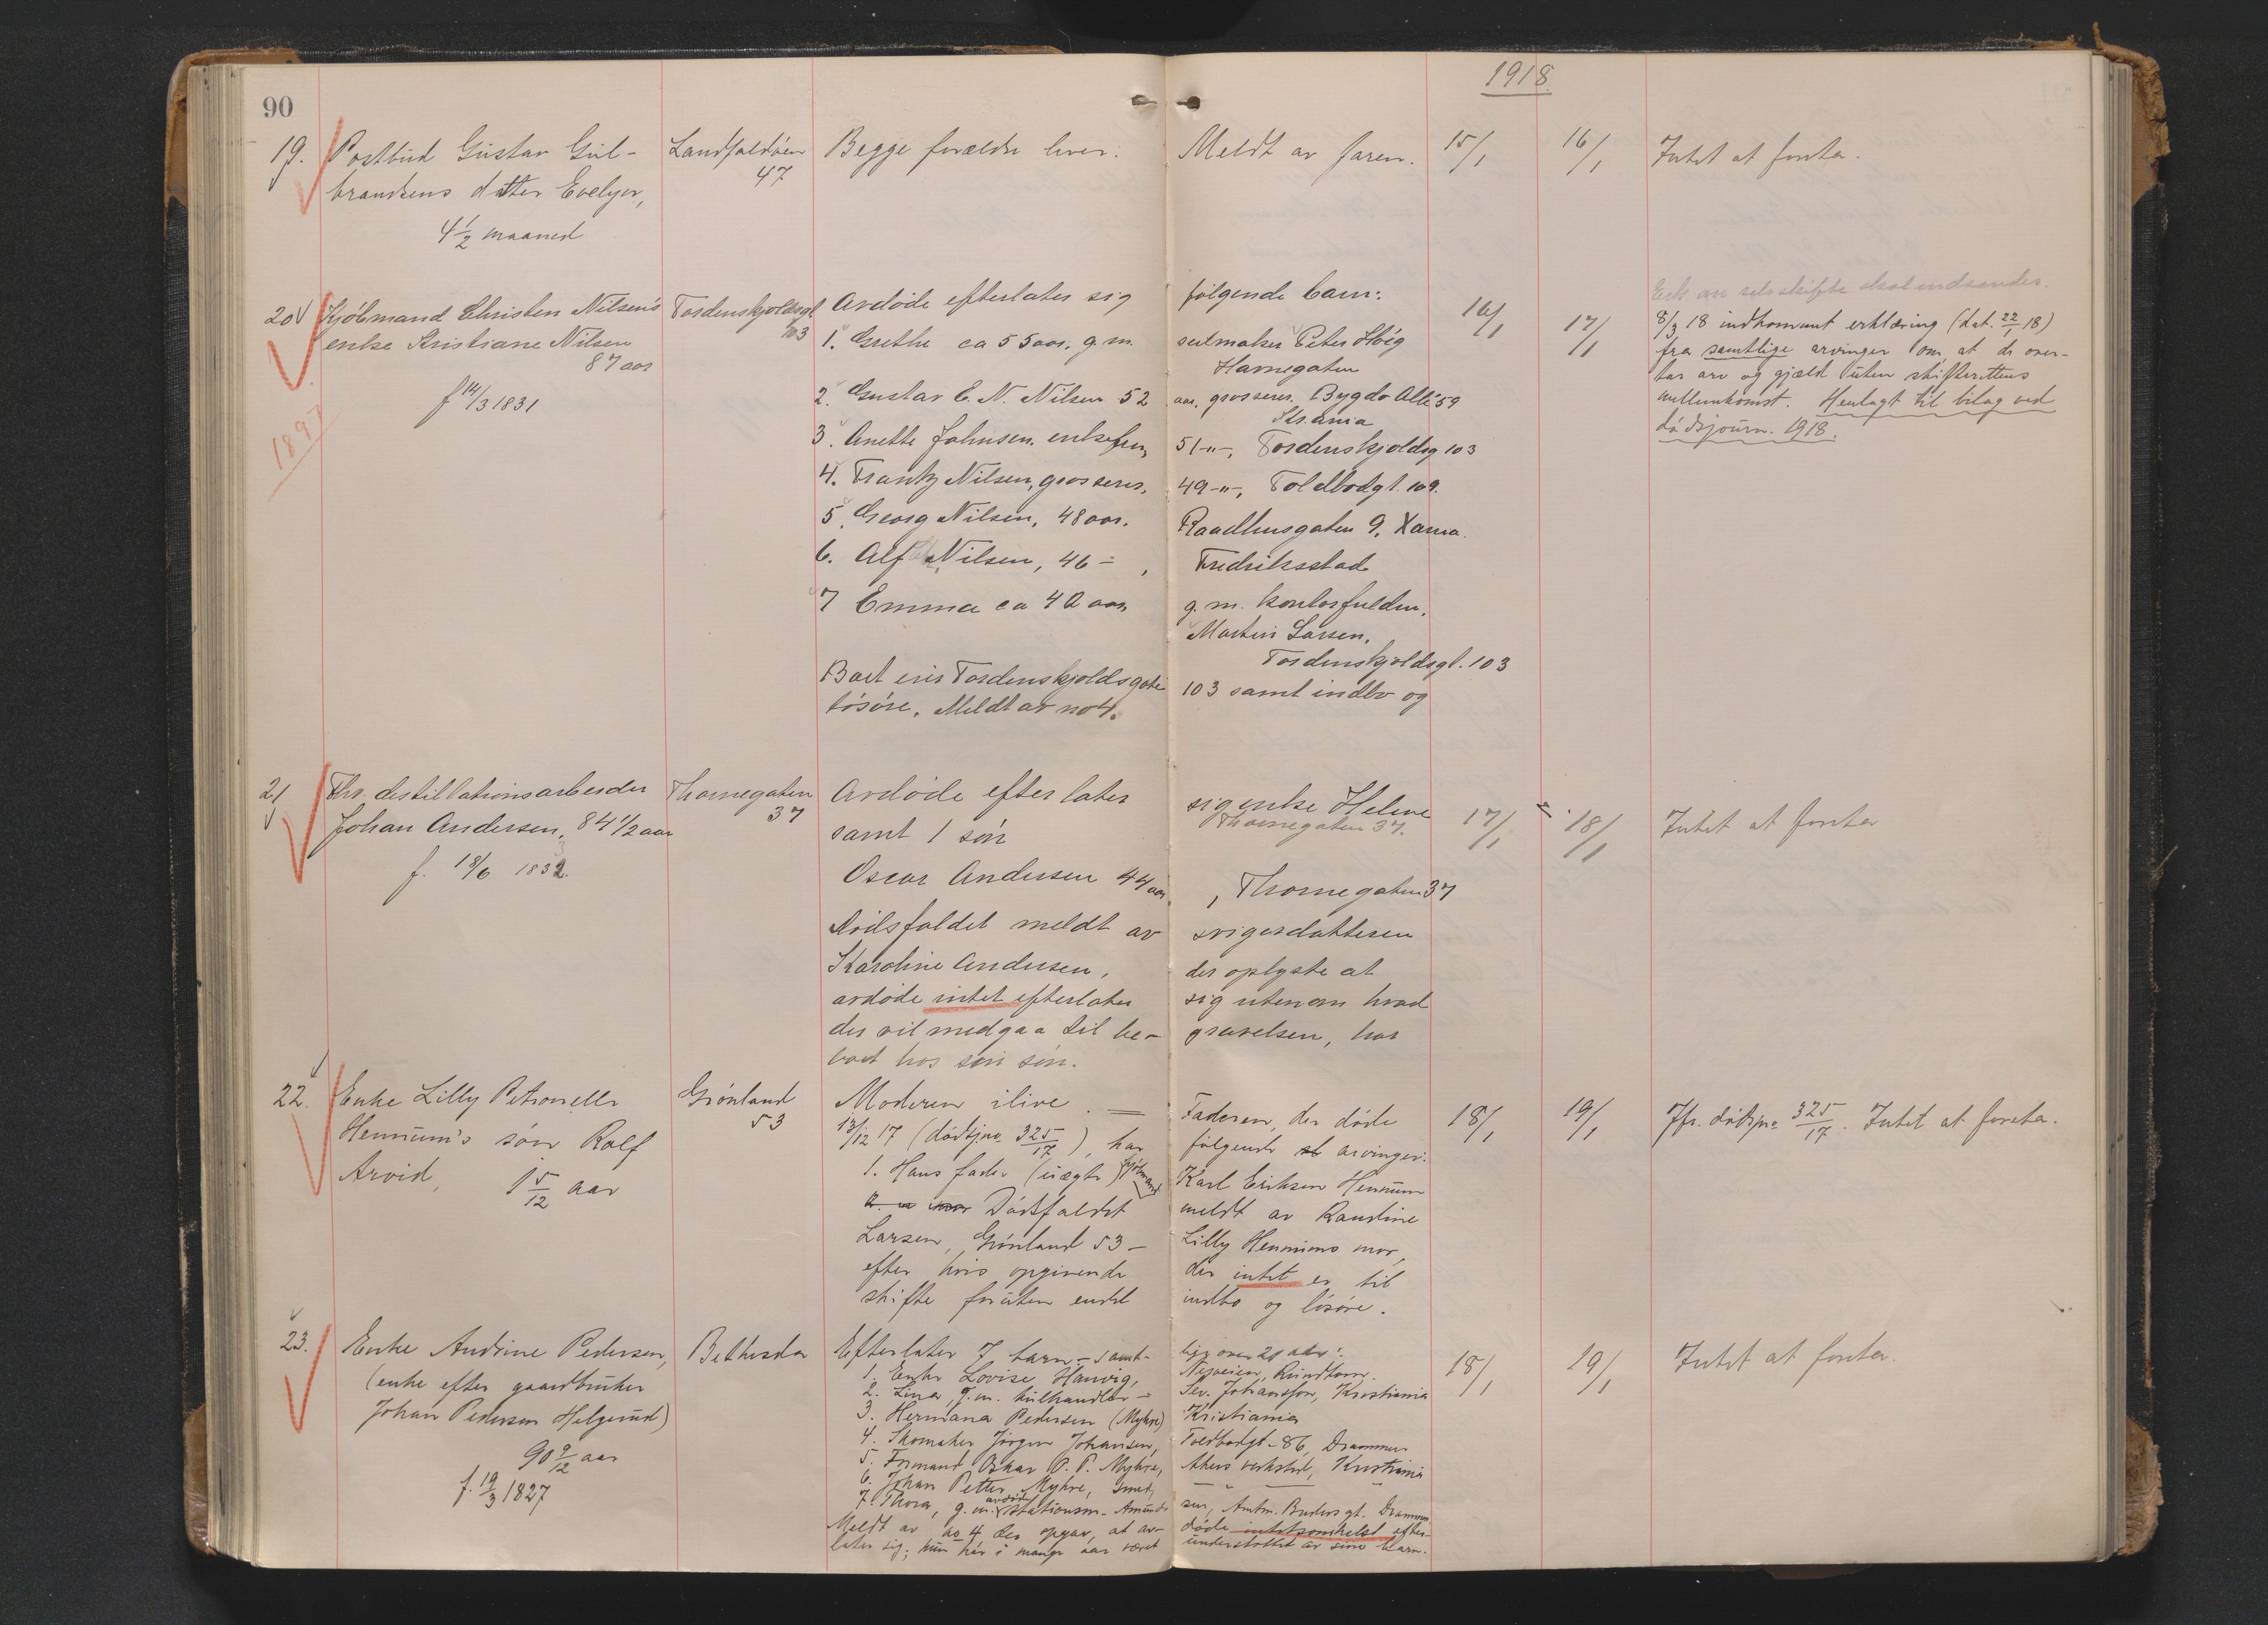 90
1918
19. Postbud Gustav Gul-
brandsens datter Evelyn,
4 1/2 maaned
Landfaldöen
47
Begge forældre lever. Meldt av faren. 15/1 16/1 Intet at foreta.
20 Kjöbmand Christen Nilsen's
enke Kristiane Nilsen
87 aar
f 14/3 1831
1897
Tordenskjoldsgt
103
Avdöde efterlater sig følgende barn: 16/1 17/1
1. Grethe ca 55 aar. g. m. seilmaker Peter Höeg
Havnegaten
2. Gustav C. N. Nilsen 52 aar, grosserer. Bygdø Allé 59
Kr.ania
3. Anette Johnsen. enkefru, 51 -"-, Tordenskjoldsg 103
4. Frantz Nilsen, grosserer, 49 -"-, Toldbodgt. 109.
5. Georg Nilsen, 48 aar. Raadhusgaten 9. Xania.
6. Alf Nilsen, 46 - , Fredriksstad
7 Emma ca 40 aar, g. m. kontorfuldm.
Martin Larsen,
Tordenskjoldsgt. 103
Boet eier Tordenskjoldsgate 103 samt indbo og
lösöre. Meldt av no 4.
Erk om selvskifte skal indsendes.
8/3 18 indkommet erklæring (dat. 22/1 18)
fra samtlige arvinger om, at de over-
tar arv og gjæld uten skifterettens
mellemkomst. Henlagt til bilag ved
dödsjourn. 1918.
21 Fhv. destillationsarbeider
Johan Andersen, 84 1/2 aar
f. 18/6 1832.
Thornegaten
37
Avdöde efterlater sig enke Helene
Thornegaten 37.
samt 1 sön
Oscar Andersen 44 aar, Thornegaten 37
Dödsfaldet meldt av svigerdatteren
Karoline Andersen, der oplyste at
avdöde intet efterlater sig utenom hvad
der vil medgaa til be- gravelsen, har
boet hos sin sön.
17/1 18/1 Intet at foreta
22. Enke Lilly Petronelle
Hennum's sön Rolf
Arvid, 1 5/12 aar
Grönland
53
Moderen ilive. — Faderen, der döde
13/12 17 (dödsj.no. 325/17), har følgende arvinger:
1. Hans fader (uægte) kjöbmand Karl Eriksen Hennum
Dödsfaldet meldt av Randine
Larsen, Grönland 53 - Lilly Hennums mor,
efter hvis opgivende der intet er til
skifte foruten endel indbo og lösöre.
18/1 19/1 Jfr. dödsj.no 325/17. Intet at foreta.
23. Enke Andrine Pedersen,
(enke efter gaardbruker
Johan Pedersen Helgerud)
90 9/12 aar
f. 19/3 1827
Bethesda
Efterlater 7 barn - samt- lige over 21 aar:
1. Enke Lovise Hanvig, Nyveien, Rundtom.
2. Lina, g. m. kulhandler Sev. Johansson, Kristiania
3. Hermana Pedersen (Myhre) Kristiania
4. Skomaker Jörgen Johansen, Toldbodgt. 86, Drammen
5. Formand Oskar P. P. Myhre, Akers verksted, Kristiania
6. Johan Petter Myhre, smed, — " —
7. Thora, g. m. avdöde stationsm. Amund- sen, Amtm. Bredersgt. Drammen
Meldt av no 4 der opgav, at av- döde intetsomhelst efter-
later sig; hun har i mange aar været understöttet av sine barn.
18/1 19/1 Intet at foreta.